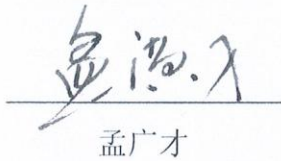 孟广才
孟广才